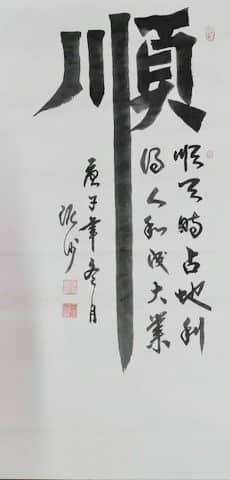 順
順天時占地利
得人和成大業
庚子年冬月